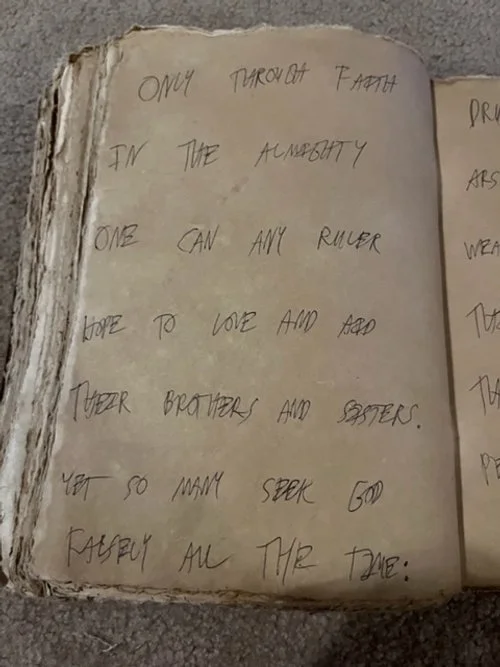 ONLY THROUGH FAITH
IN THE ALMIGHTY
ONE CAN ANY RULER
HOPE TO LOVE AND AID
THEIR BROTHERS AND SISTERS.
YET SO MANY SEEK GOD
FALSELY ALL THE TIME: